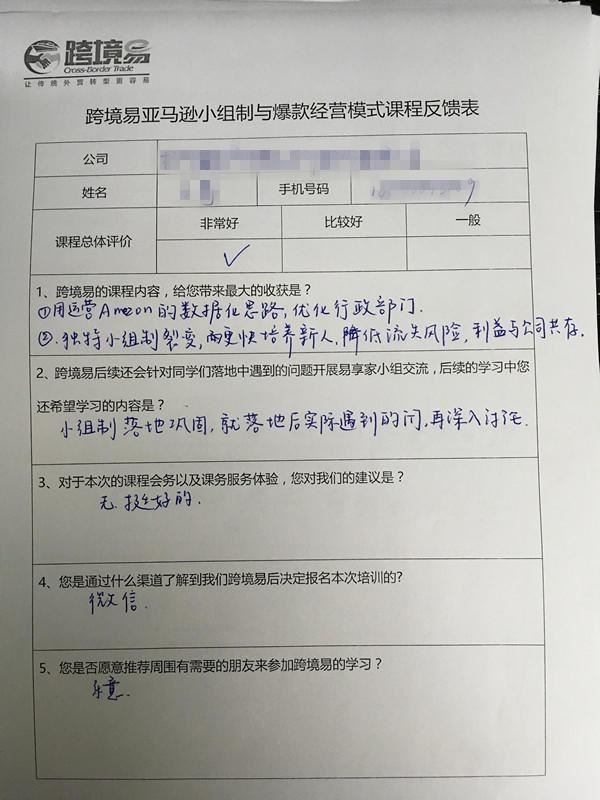 跨境易
Cross-Border Trade
让传统外贸转型更容易
跨境易亚马逊小组制与爆款经营模式课程反馈表
公司
姓名 手机号码
课程总体评价 非常好 比较好 一般
✓
1、跨境易的课程内容，给您带来最大的收获是？
①用运营Amazon的数据化思路,优化行政部门.
②.独特小组制裂变,而更快培养新人,降低流失风险,利益与公司共存.
2、跨境易后续还会针对同学们落地中遇到的问题开展易享家小组交流，后续的学习中您
还希望学习的内容是？
小组制落地巩固,就落地后实际遇到的问,再深入讨论.
3、对于本次的课程会务以及课务服务体验，您对我们的建议是？
无.挺好的.
4、您是通过什么渠道了解到我们跨境易后决定报名本次培训的?
微信.
5、您是否愿意推荐周围有需要的朋友来参加跨境易的学习？
乐意.